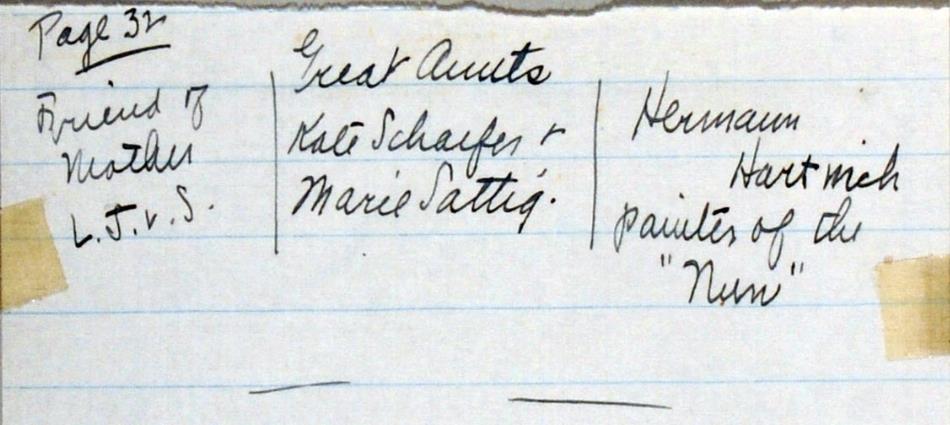 Page 32
Friend of
Mother
L.J.v.S.
Great Aunts
Kate Schaefer +
Marie Sattig.
Hermann
Hartwich
painter of the
"Nun"